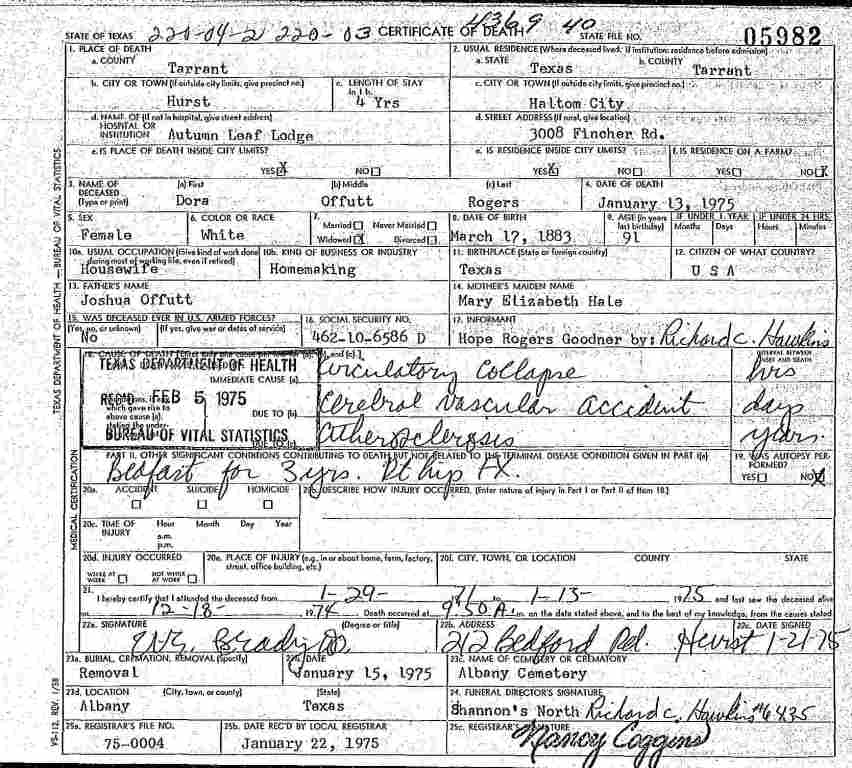 STATE OF TEXAS 220-04-2 220-03 CERTIFICATE OF DEATH 4369 40 STATE FILE NO. 05982
1. PLACE OF DEATH
a. COUNTY
Tarrant
2. USUAL RESIDENCE (Where deceased lived. If institution: residence before admission)
a. STATE b. COUNTY
Texas Tarrant
b. CITY OR TOWN (If outside city limits, give precinct no.)
Hurst
c. LENGTH OF STAY
in 1 b.
4 Yrs
c. CITY OR TOWN (If outside city limits, give precinct no.)
Haltom City
d. NAME OF (If not in hospital, give street address)
HOSPITAL OR
INSTITUTION Autumn Leaf Lodge
d. STREET ADDRESS (If rural, give location)
3008 Fincher Rd.
e. IS PLACE OF DEATH INSIDE CITY LIMITS?
YES X NO
e. IS RESIDENCE INSIDE CITY LIMITS?
YES X NO
f. IS RESIDENCE ON A FARM?
YES NO X
3. NAME OF
DECEASED
(Type or print)
(a) First (b) Middle (c) Last
Dora Offutt Rogers
4. DATE OF DEATH
January 13, 1975
5. SEX
Female
6. COLOR OR RACE
White
7.
Married Never Married
Widowed X Divorced
8. DATE OF BIRTH
March 17, 1883
9. AGE (In years
last birthday)
91
IF UNDER 1 YEAR
Months Days
IF UNDER 24 HRS.
Hours Minutes
10a. USUAL OCCUPATION (Give kind of work done
during most of working life, even if retired)
Housewife
10b. KIND OF BUSINESS OR INDUSTRY
Homemaking
11. BIRTHPLACE (State or foreign country)
Texas
12. CITIZEN OF WHAT COUNTRY?
U S A
13. FATHER'S NAME
Joshua Offutt
14. MOTHER'S MAIDEN NAME
Mary Elizabeth Hale
15. WAS DECEASED EVER IN U.S. ARMED FORCES?
(Yes, no, or unknown) (If yes, give war or dates of service)
No
16. SOCIAL SECURITY NO.
462-10-6586 D
17. INFORMANT
Hope Rogers Goodner by: Richard C. Hawkins
18. CAUSE OF DEATH
INTERVAL BETWEEN
ONSET AND DEATH
TEXAS DEPARTMENT OF HEALTH
REC'D FEB 5 1975
BUREAU OF VITAL STATISTICS
IMMEDIATE CAUSE (a) Circulatory Collapse hrs
which gave rise to
above cause (a),
stating the under-
DUE TO (b) Cerebral Vascular Accident days
DUE TO (c) Atherosclerosis years.
PART II. OTHER SIGNIFICANT CONDITIONS CONTRIBUTING TO DEATH BUT NOT RELATED TO THE TERMINAL DISEASE CONDITION GIVEN IN PART I(a)
Bedfast for 3 yrs. Rt hip FX.
19. WAS AUTOPSY PER-
FORMED?
YES NO X
20a. ACCIDENT SUICIDE HOMICIDE
20b. DESCRIBE HOW INJURY OCCURRED. (Enter nature of injury in Part I or Part II of item 18.)
20c. TIME OF
INJURY
Hour Month Day Year
a.m.
p.m.
20d. INJURY OCCURRED
WHILE AT
WORK
NOT WHILE
AT WORK
20e. PLACE OF INJURY (e.g., in or about home, farm, factory,
street, office building, etc.)
20f. CITY, TOWN, OR LOCATION COUNTY STATE
21.
I hereby certify that I attended the deceased from 1-29- 1971 to 1-13- 1975 and last saw the deceased alive
on 12-18- 1974 Death occurred at 9:50 A. m. on the date stated above, and to the best of my knowledge, from the causes stated
22a. SIGNATURE (Degree or title)
W.G. Brady DO
22b. ADDRESS
212 Bedford Rd. Hurst
22c. DATE SIGNED
1-21-75
23a. BURIAL, CREMATION, REMOVAL (Specify)
Removal
23b. DATE
January 15, 1975
23c. NAME OF CEMETERY OR CREMATORY
Albany Cemetery
23d. LOCATION (City, town, or county) (State)
Albany Texas
24. FUNERAL DIRECTOR'S SIGNATURE
Shannon's North Richard C. Hawkins #6435
25a. REGISTRAR'S FILE NO.
75-0004
25b. DATE REC'D BY LOCAL REGISTRAR
January 22, 1975
25c. REGISTRAR'S SIGNATURE
Nancy Coggins
TEXAS DEPARTMENT OF HEALTH — BUREAU OF VITAL STATISTICS
MEDICAL CERTIFICATION
VS-112, REV. 1/58